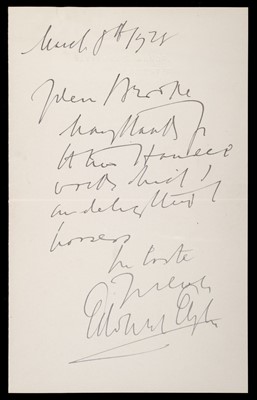 March 8th 1928
Dear Brooke
Many thanks for
the two
works which I
am delighted to
possess
In haste
Yrs ever
Edward Elgar